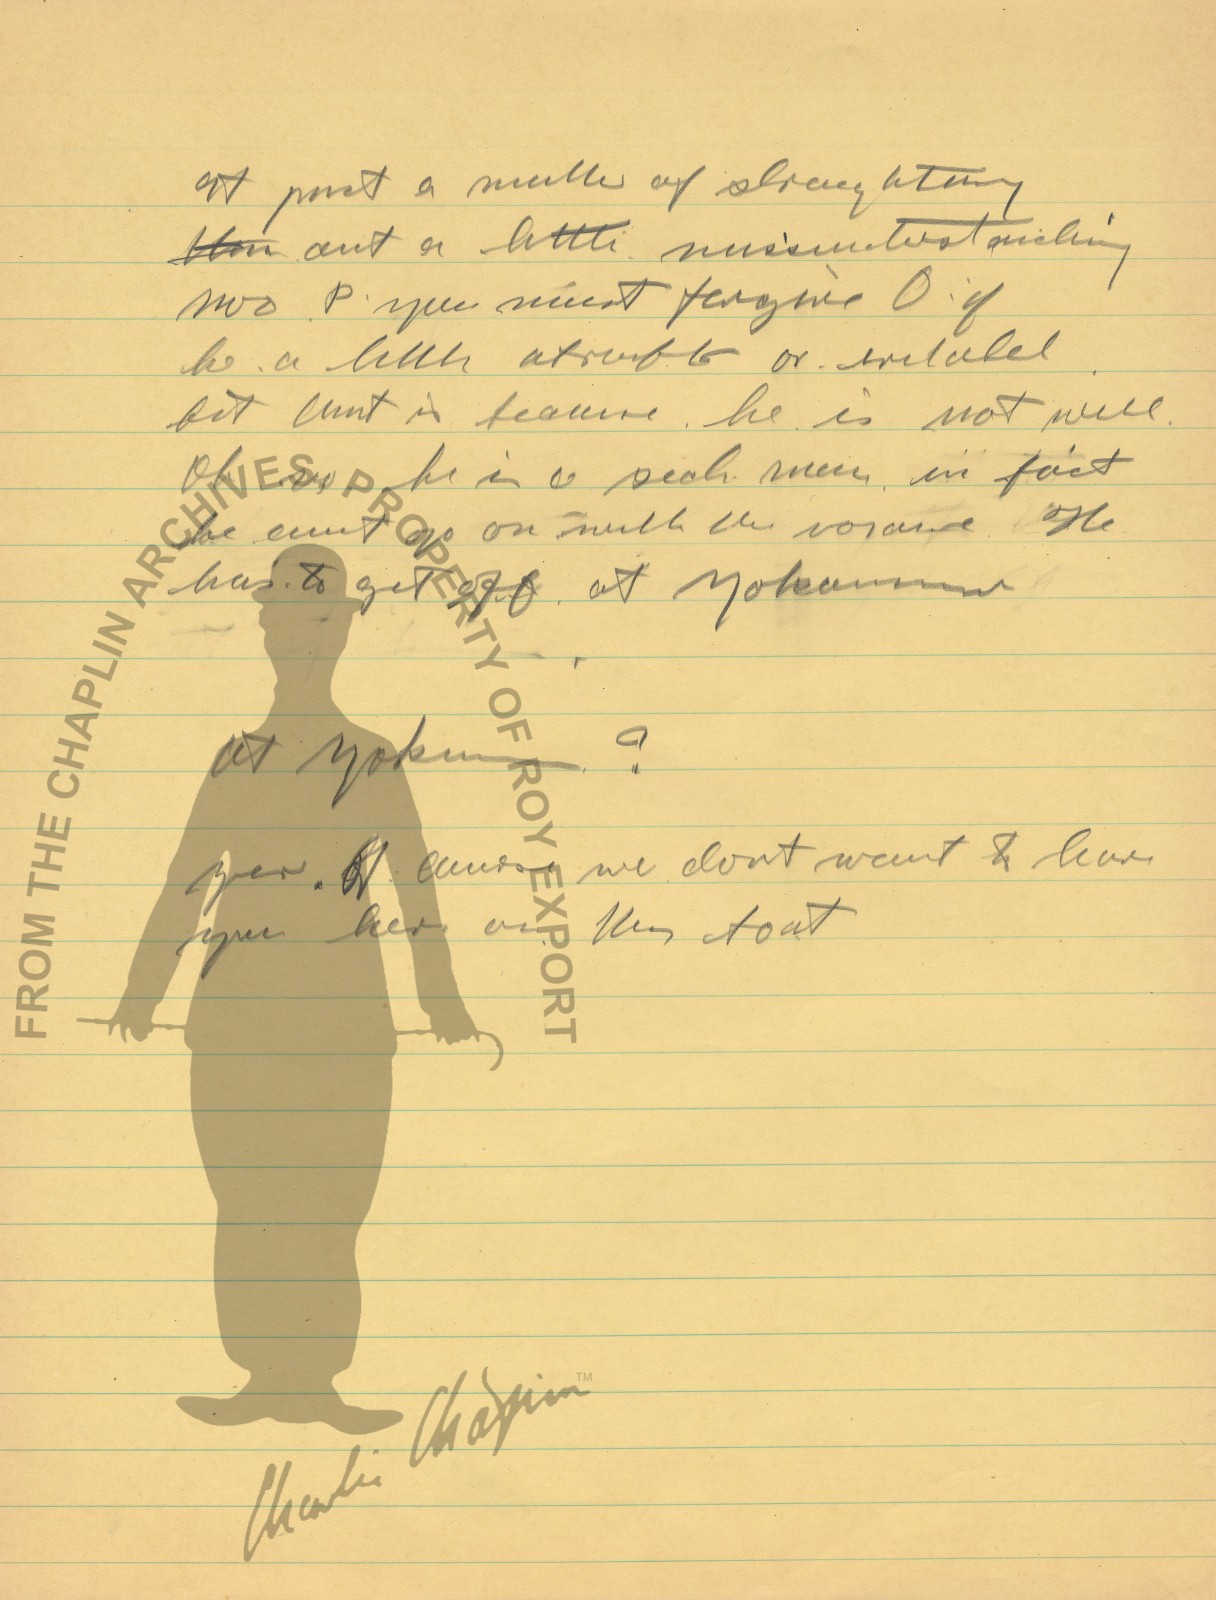 at just a matter of straightening
out a little missunderstanding
now P. you must forgive O. if
he a little abrupt or
but that is because he is not well.
Oh no he is a sick man, in fact
he cant go on with the voyage He
has to get off at Yokohama
at Yokohama ?
yes. Of course we dont want to have
you here on this boat
FROM THE CHAPLIN ARCHIVES, PROPERTY OF ROY EXPORT
Charlie Chaplin™